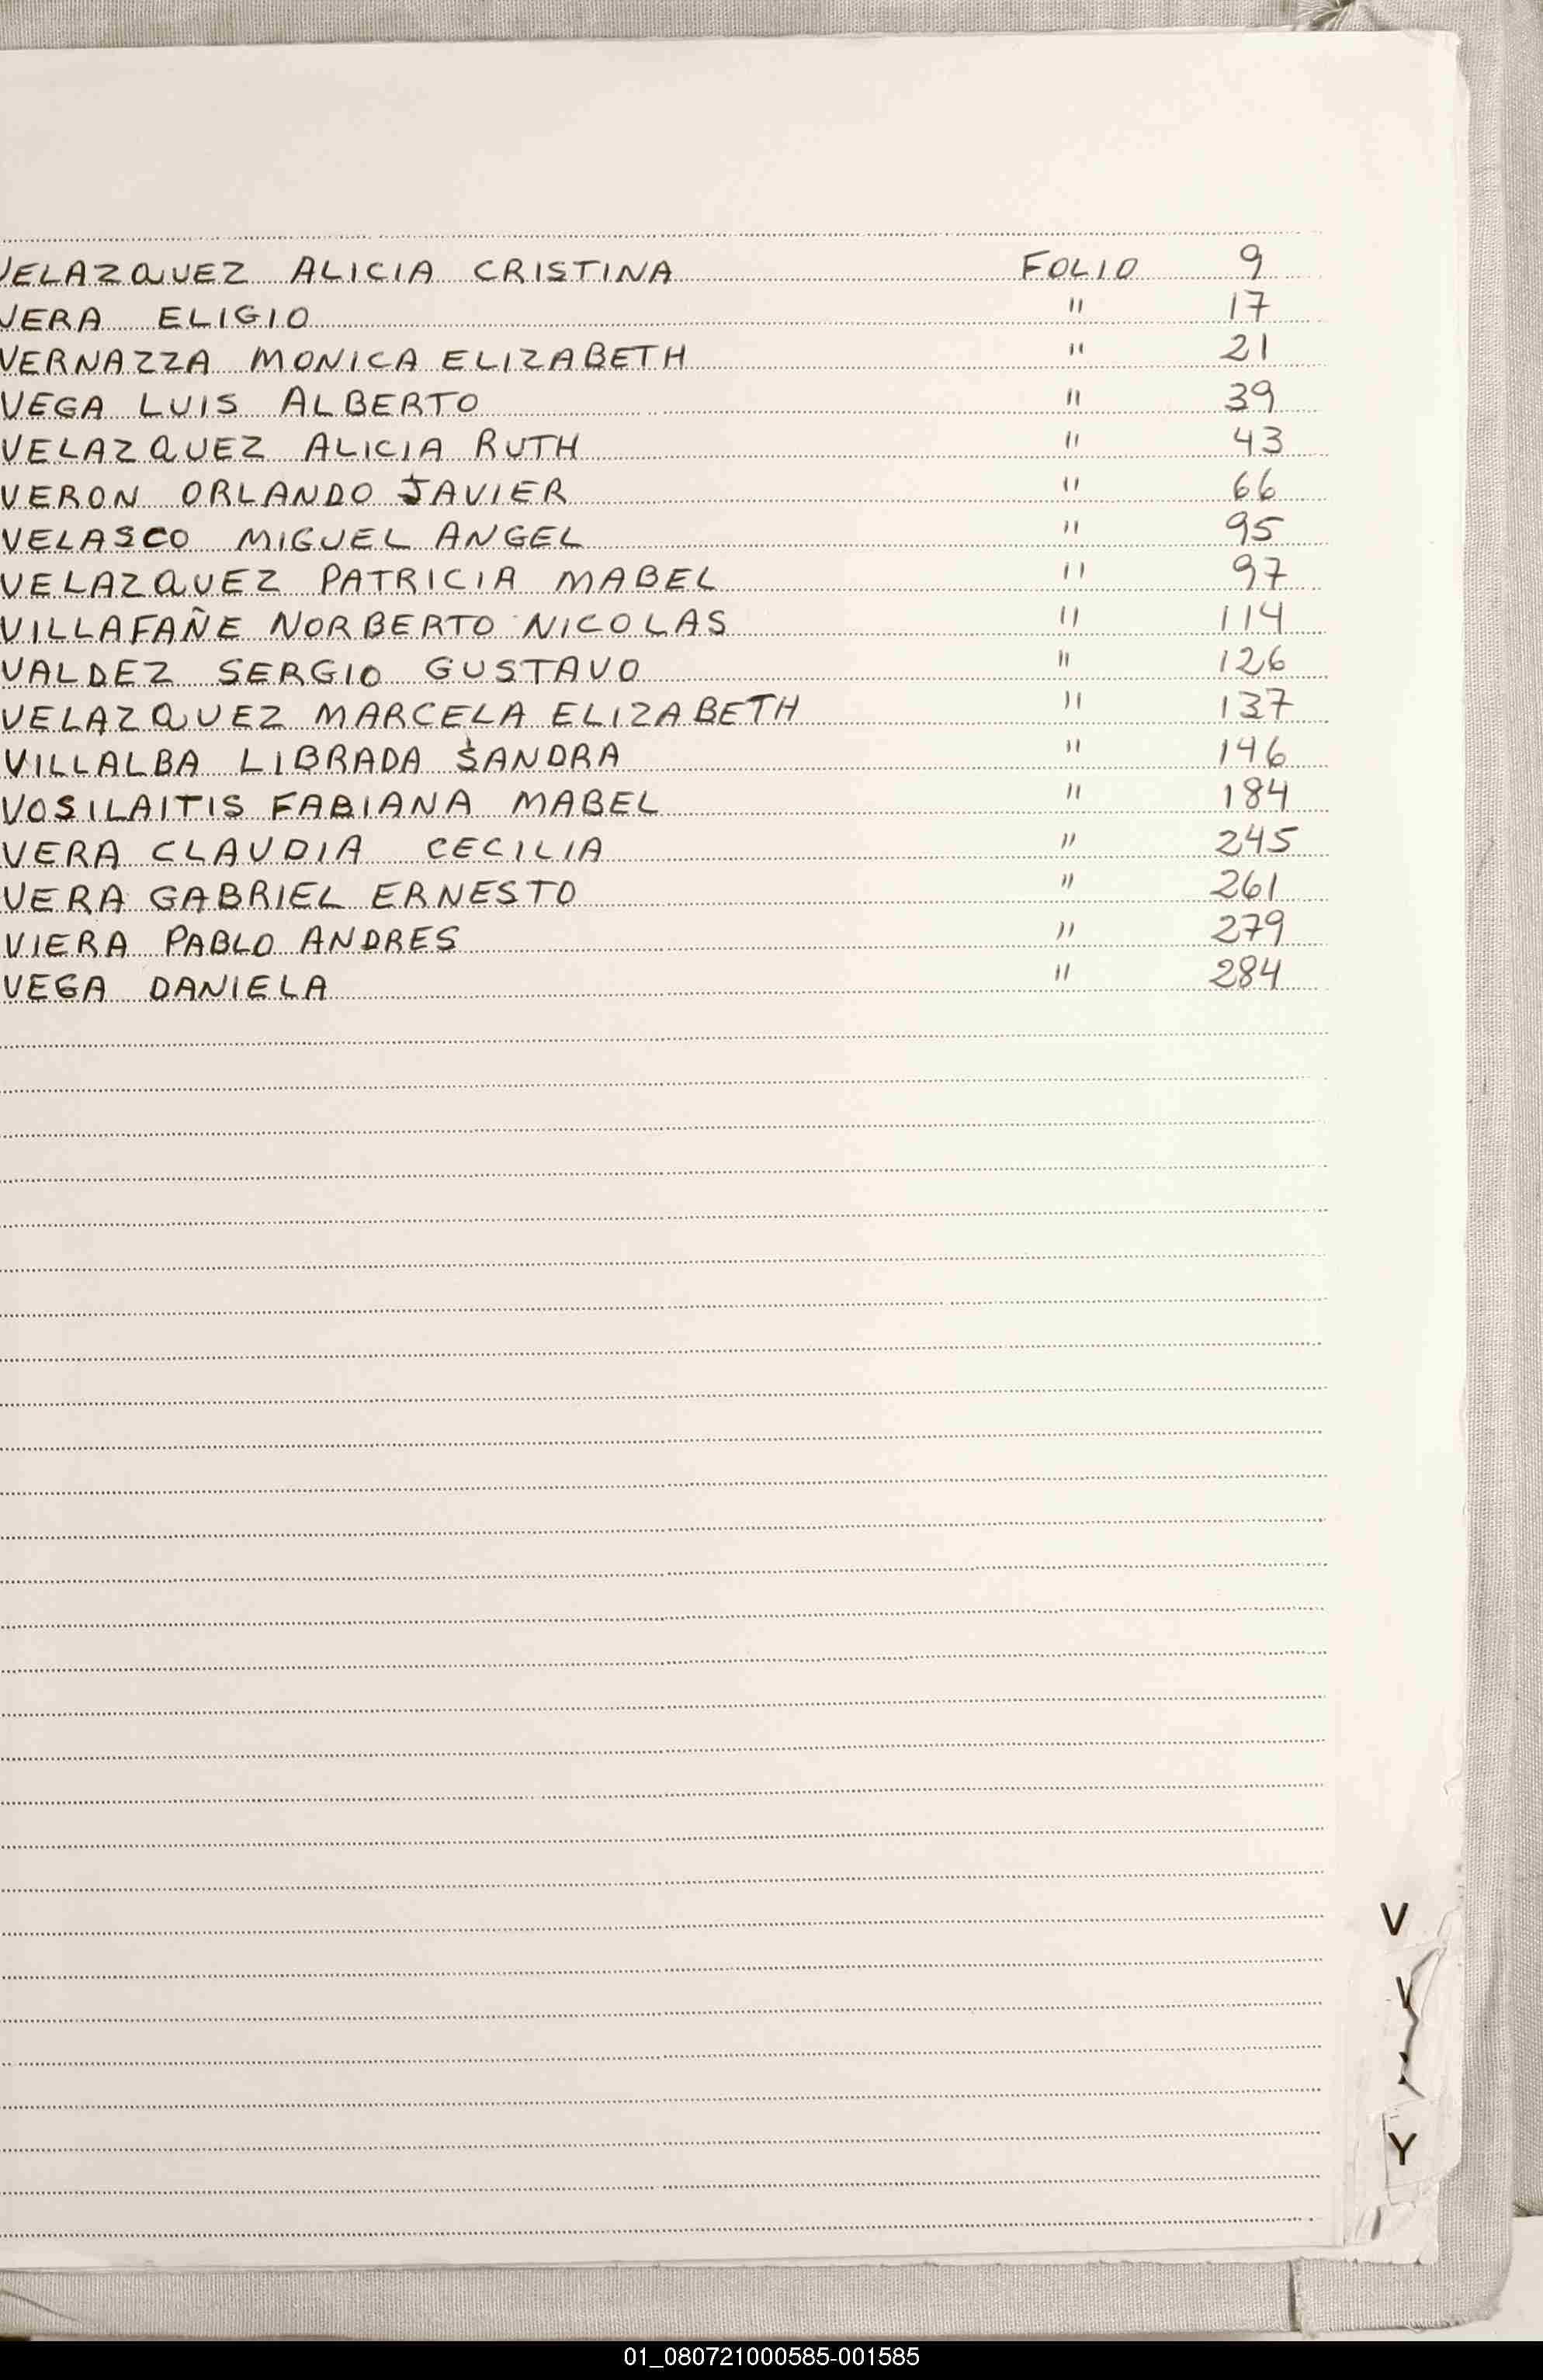 VELAZQUEZ ALICIA CRISTINA FOLIO 9
VERA ELIGIO " 17
VERNAZZA MONICA ELIZABETH " 21
VEGA LUIS ALBERTO " 39
VELAZQUEZ ALICIA RUTH " 43
VERON ORLANDO JAVIER " 66
VELASCO MIGUEL ANGEL " 95
VELAZQUEZ PATRICIA MABEL " 97
VILLAFAÑE NORBERTO NICOLAS " 114
VALDEZ SERGIO GUSTAVO " 126
VELAZQUEZ MARCELA ELIZABETH " 137
VILLALBA LIBRADA SANDRA " 146
VOSILAITIS FABIANA MABEL " 184
VERA CLAUDIA CECILIA " 245
VERA GABRIEL ERNESTO " 261
VIERA PABLO ANDRES " 279
VEGA DANIELA " 284
V
Y
01_080721000585-001585